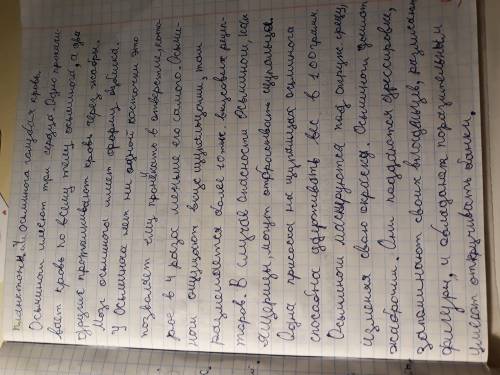 планктоном. У осьминога голубая кровь.
Осьминоги имеют три сердца. Одно прогоня-
вает кровь по всему телу осьминога, а два
других проталкивают кровь через жабры.
Мозг осьминога имеет форму бублика.
У осьминога нет ни одной косточки это
позволяет ему проникать в отверстие, кото-
рое в 4 раза меньше его самого. Осьми-
ноги ощущают вкус щупальцами, там
размещается более 10 тыс. вкусовых рецеп-
торов. В случае опасности осьминоги, как
ящерицы, могут отбрасывать щупальца.
Одна присоска на щупальцах осьминога
способна удерживать вес в 100 грамм.
Осьминоги маскируются под окруж. среду,
изменяя свою окраску. Осьминоги дышат
жабрами. Они поддаются дрессировке,
запоминают своих владельцев, различают
фигуры, и обладают поразительным
умеют откручивать банки.